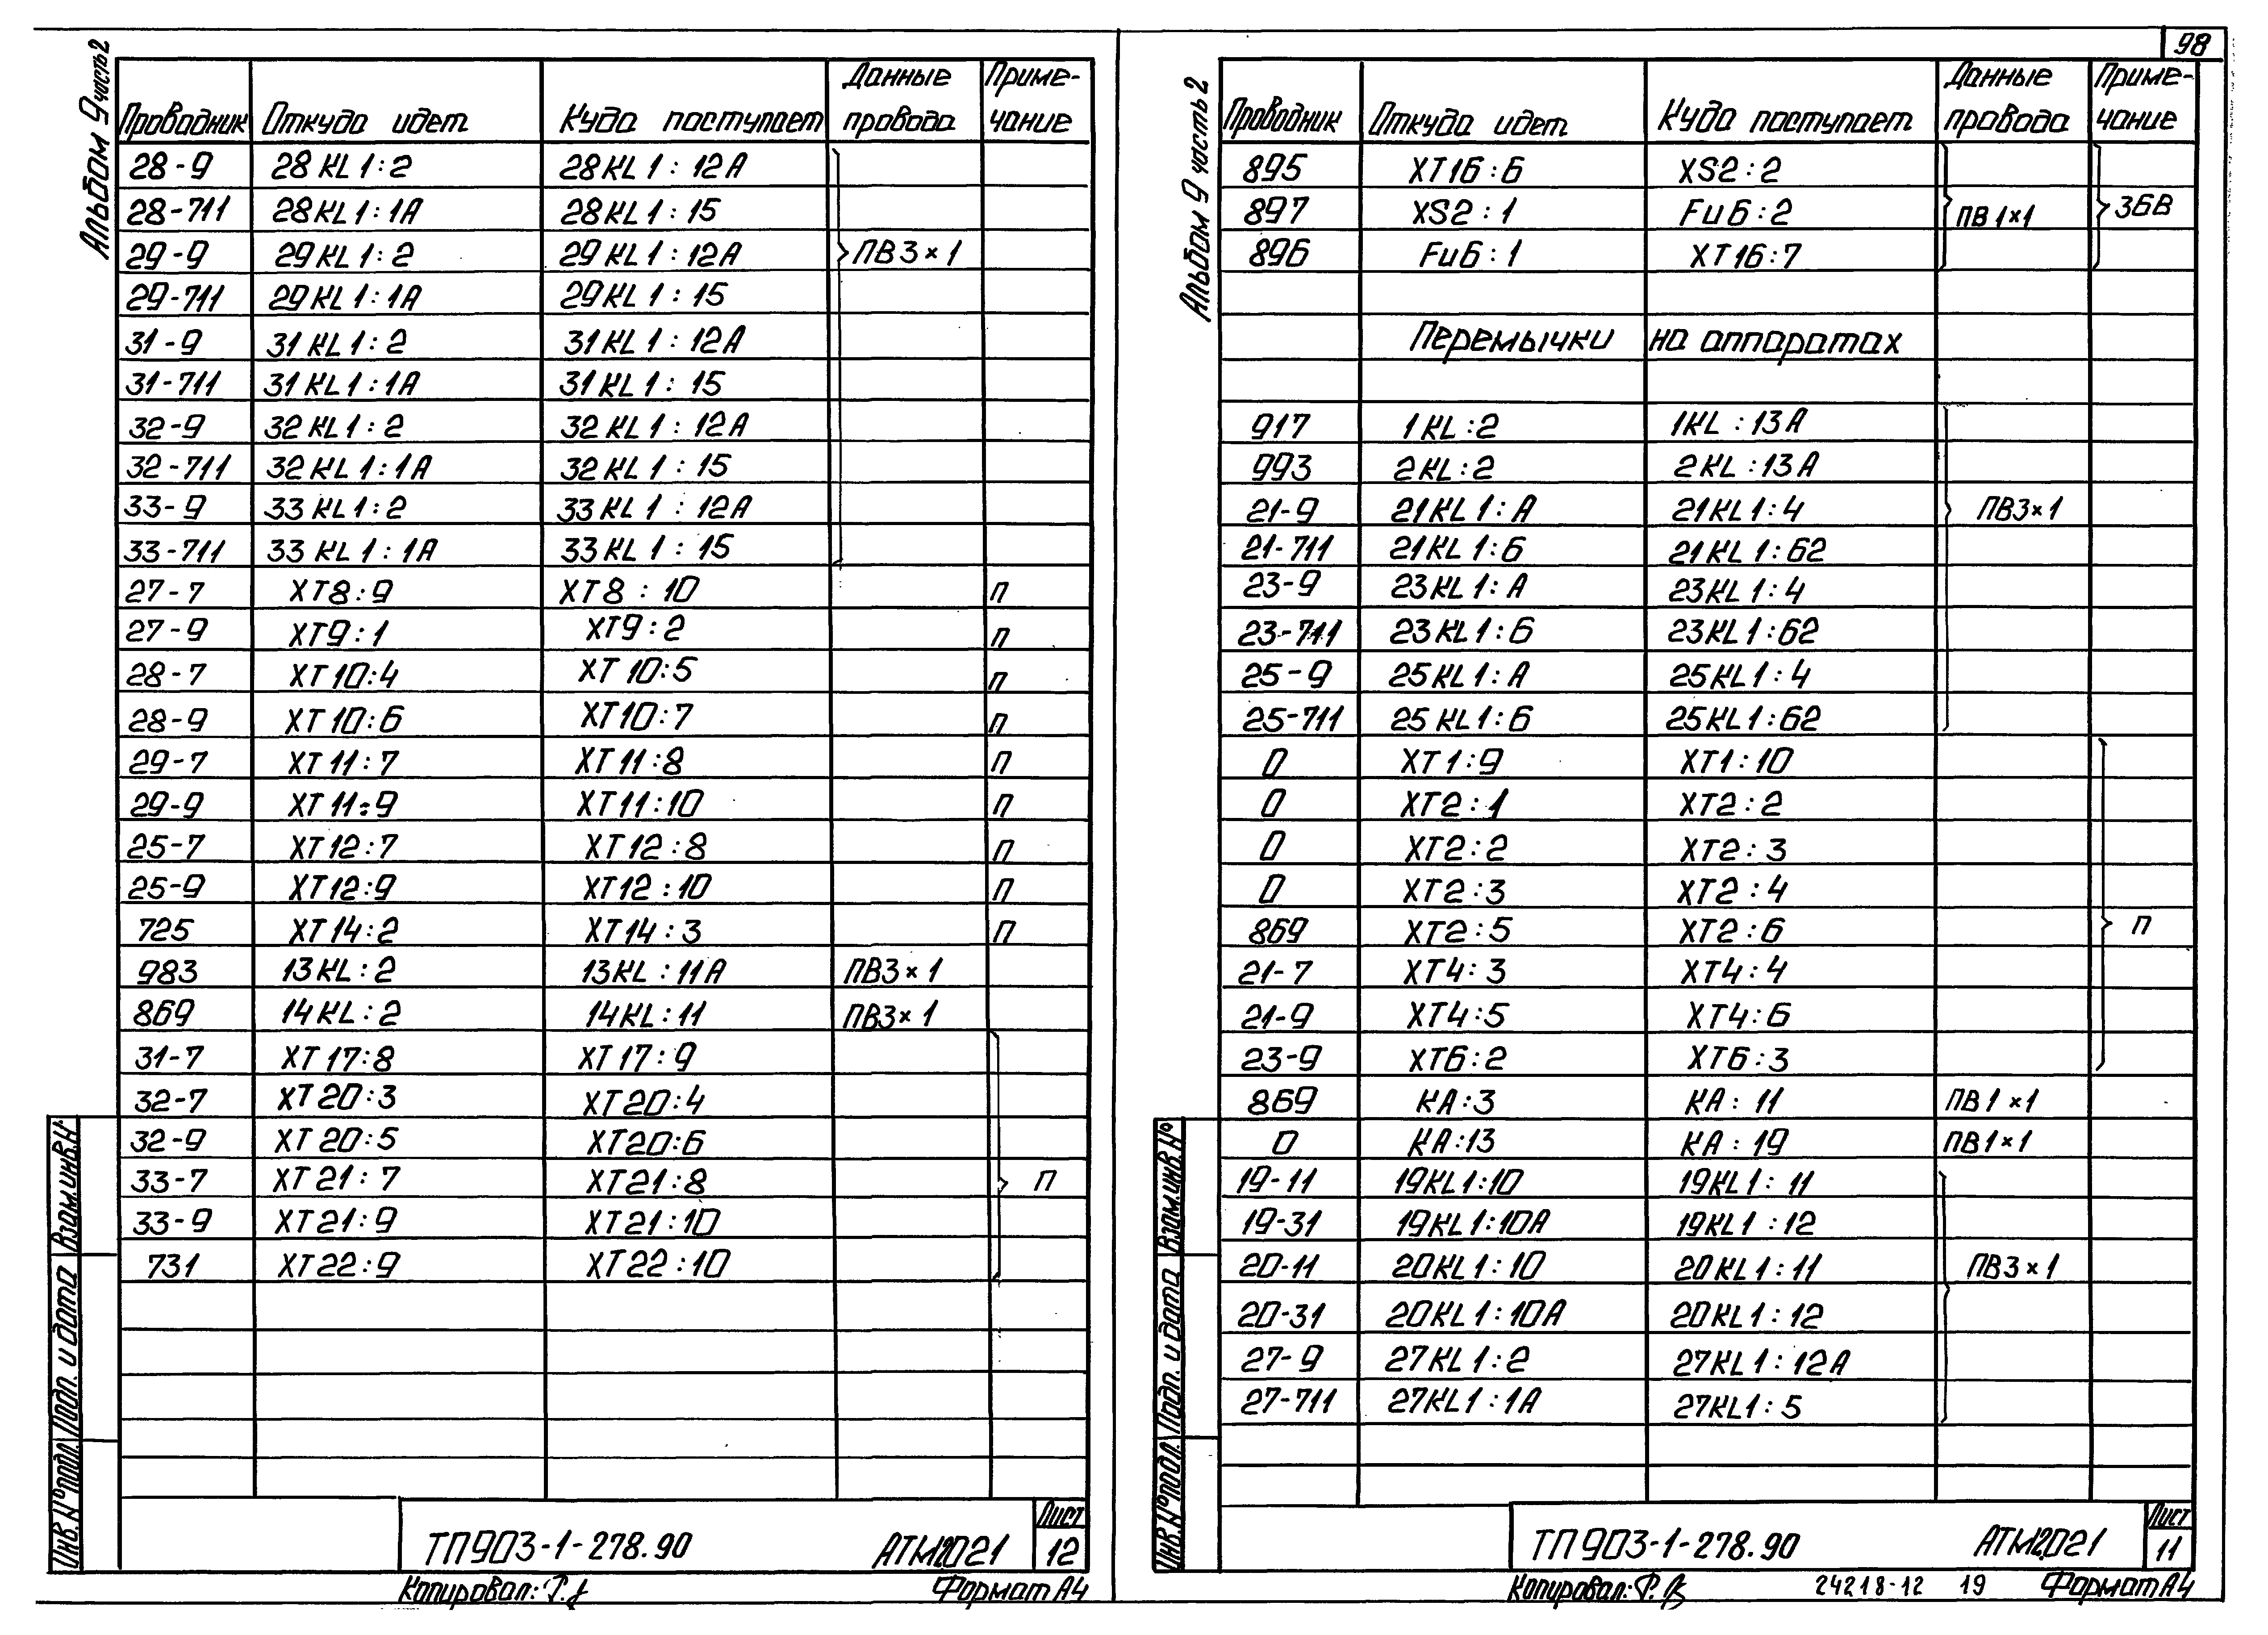 98
Альбом 9 часть 2
Проводник Откуда идет Куда поступает Данные провода Приме-чание
28-9 28KL1:2 28KL1:12А
28-711 28KL1:1А 28KL1:15
29-9 29KL1:2 29KL1:12А ПВ3×1
29-711 29KL1:1А 29KL1:15
31-9 31KL1:2 31KL1:12А
31-711 31KL1:1А 31KL1:15
32-9 32KL1:2 32KL1:12А
32-711 32KL1:1А 32KL1:15
33-9 33KL1:2 33KL1:12А
33-711 33KL1:1А 33KL1:15
27-7 ХТ8:9 ХТ8:10 п
27-9 ХТ9:1 ХТ9:2 п
28-7 ХТ10:4 ХТ10:5 п
28-9 ХТ10:6 ХТ10:7 п
29-7 ХТ11:7 ХТ11:8 п
29-9 ХТ11:9 ХТ11:10 п
25-7 ХТ12:7 ХТ12:8 п
25-9 ХТ12:9 ХТ12:10 п
725 ХТ14:2 ХТ14:3 п
983 13KL:2 13KL:11А ПВ3×1
869 14KL:2 14KL:11 ПВ3×1
31-7 ХТ17:8 ХТ17:9
32-7 ХТ20:3 ХТ20:4
32-9 ХТ20:5 ХТ20:6
33-7 ХТ21:7 ХТ21:8 п
33-9 ХТ21:9 ХТ21:10
731 ХТ22:9 ХТ22:10
Инв.N°подл. Подп. и дата Взам.инв.N°
ТП903-1-278.90 АТМ12021 Лист 12
Копировал: Формат А4
Альбом 9 часть 2
Проводник Откуда идет Куда поступает Данные провода Приме-чание
895 ХТ16:6 XS2:2
897 XS2:1 Fu6:2 ПВ1×1 36В
896 Fu6:1 ХТ16:7
Перемычки на аппаратах
917 1KL:2 1KL:13А
993 2KL:2 2KL:13А
21-9 21KL1:А 21KL1:4 ПВ3×1
21-711 21KL1:6 21KL1:62
23-9 23KL1:А 23KL1:4
23-711 23KL1:6 23KL1:62
25-9 25KL1:А 25KL1:4
25-711 25KL1:6 25KL1:62
0 ХТ1:9 ХТ1:10
0 ХТ2:1 ХТ2:2
0 ХТ2:2 ХТ2:3
0 ХТ2:3 ХТ2:4
869 ХТ2:5 ХТ2:6 п
21-7 ХТ4:3 ХТ4:4
21-9 ХТ4:5 ХТ4:6
23-9 ХТ6:2 ХТ6:3
869 КА:3 КА:11 ПВ1×1
0 КА:13 КА:19 ПВ1×1
19-11 19KL1:10 19KL1:11
19-31 19KL1:10А 19KL1:12
20-11 20KL1:10 20KL1:11 ПВ3×1
20-31 20KL1:10А 20KL1:12
27-9 27KL1:2 27KL1:12А
27-711 27KL1:1А 27KL1:5
Инв.N°подл. Подп. и дата Взам.инв.N°
ТП903-1-278.90 АТМ12021 Лист 11
Копировал: 24218-12 19 Формат А4